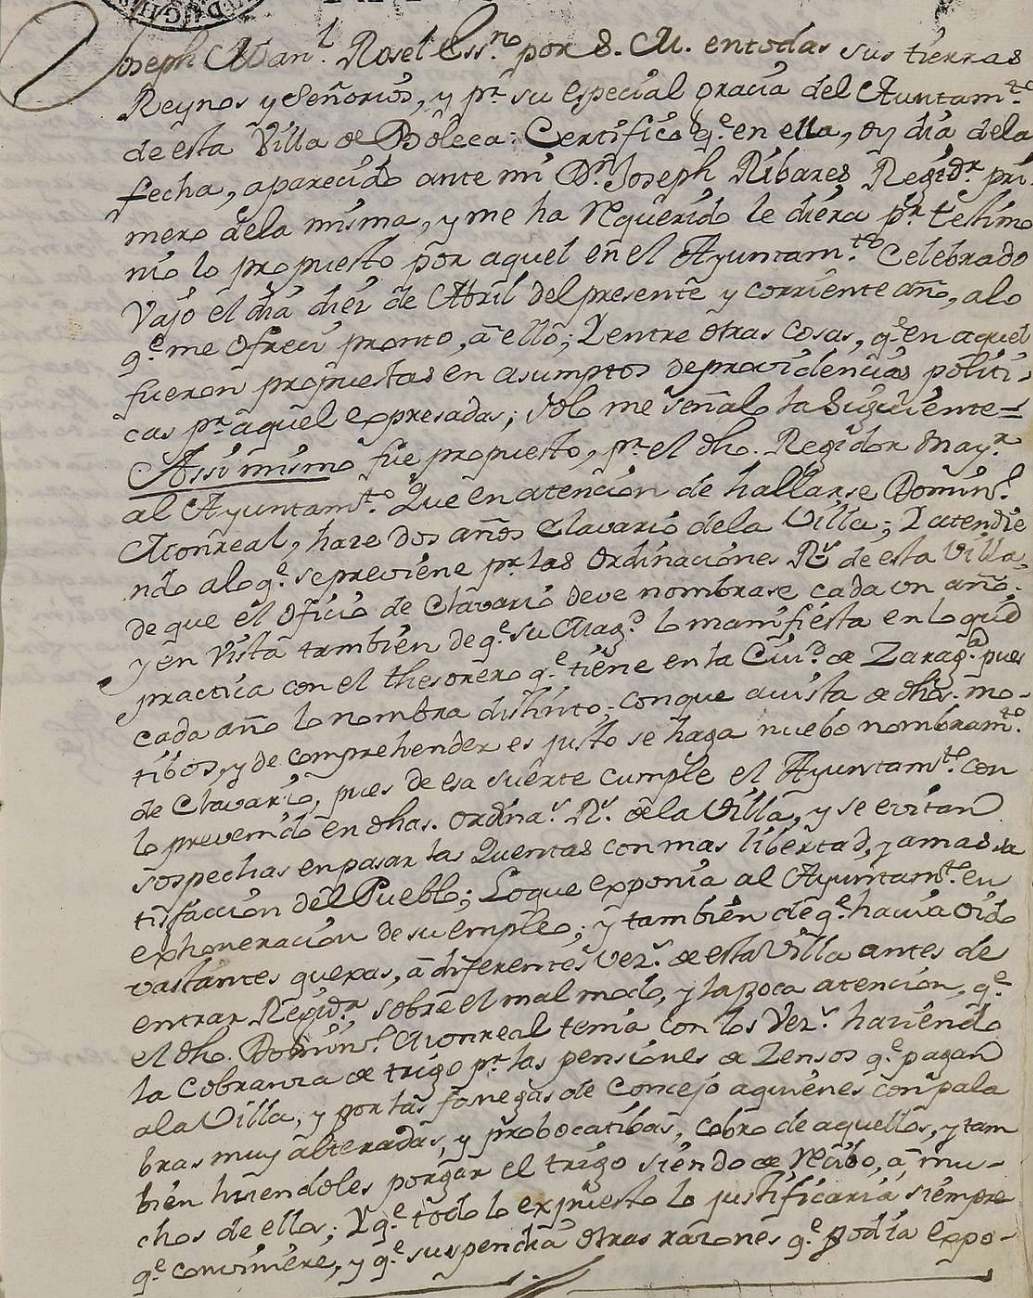 Joseph Man.l Rosel Ess.no por S. M. en todas sus tierras
Reynos y Señorios, y p.r su especial gracia del Ayuntam.to
de esta Villa de Bolea: Certifico q.e en ella, oy dia dela
fecha, aparecido ante mi D.n Joseph Ribares Regid.r pri
mero dela misma, y me ha requerido le diera p.r testimo
nio lo propuesto por aquel en el Ayuntam.to Celebrado
vajo el dia diez de Abril del presente y corriente año, alo
q.e me ofreci pronto, a ello; Y entre otras cosas, q.e en aquel
fueron propuestas en asumptos de providencias politi-
cas p.r aquel expresadas; solo me señalo la Siguiente=
Assi mismo fue propuesto, p.r el dho. Regidor may.r
al Ayuntam.to Que en atencion de hallarse Domin.o
Monreal, haze dos años clavario dela Villa; Y atendie
ndo alo q.e se previene p.r las Ordinaciones R.s de esta Villa
de que el Oficio de Clavario deve nombrase cada un año
y en vista tambien de q.e su Mag.d lo manifiesta en lo q.e
practica con el thesorero q.e tiene en la Ciu.d de Zarag.a pues
cada año lo nombra distinto-conque a vista de dhos. mo-
tibos, y de comprehender es justo se haga nuebo nombram.to
de Clavario, pues de esa suerte cumple el Ayuntam.to con
lo prevenido en dhas. ordina.s R.s de la Villa, y se evitan
sospechas en pasar las Quentas con mas libertad, y a mas sa
tisfaccion del Pueblo; Loque exponia al Ayuntam.to en
exhoneracion de su empleo; y tambien de q.e havia oido
vastantes quexas, a diferentes vez.s de esta Villa antes de
entrar Regid.r sobre el mal modo, y la poca atencion, q.e
el dho. Domin.o Monreal tenia con los vez.s haziendo
la Cobranza de trigo p.r las pensiones de Zensos q.e pagan
ala Villa, y por las fanegas de Concejo a quienes con pala
bras muy alteradas, y probocatibas, cobro de aquellos, y tam
bien hiziendoles porgar el trigo siendo de recibo, a mu-
chos de ellos; Y q.e todo lo expuesto lo justificaria siempre
q.e conviniere, y q.e suspendia otras razones q.e podia expo-